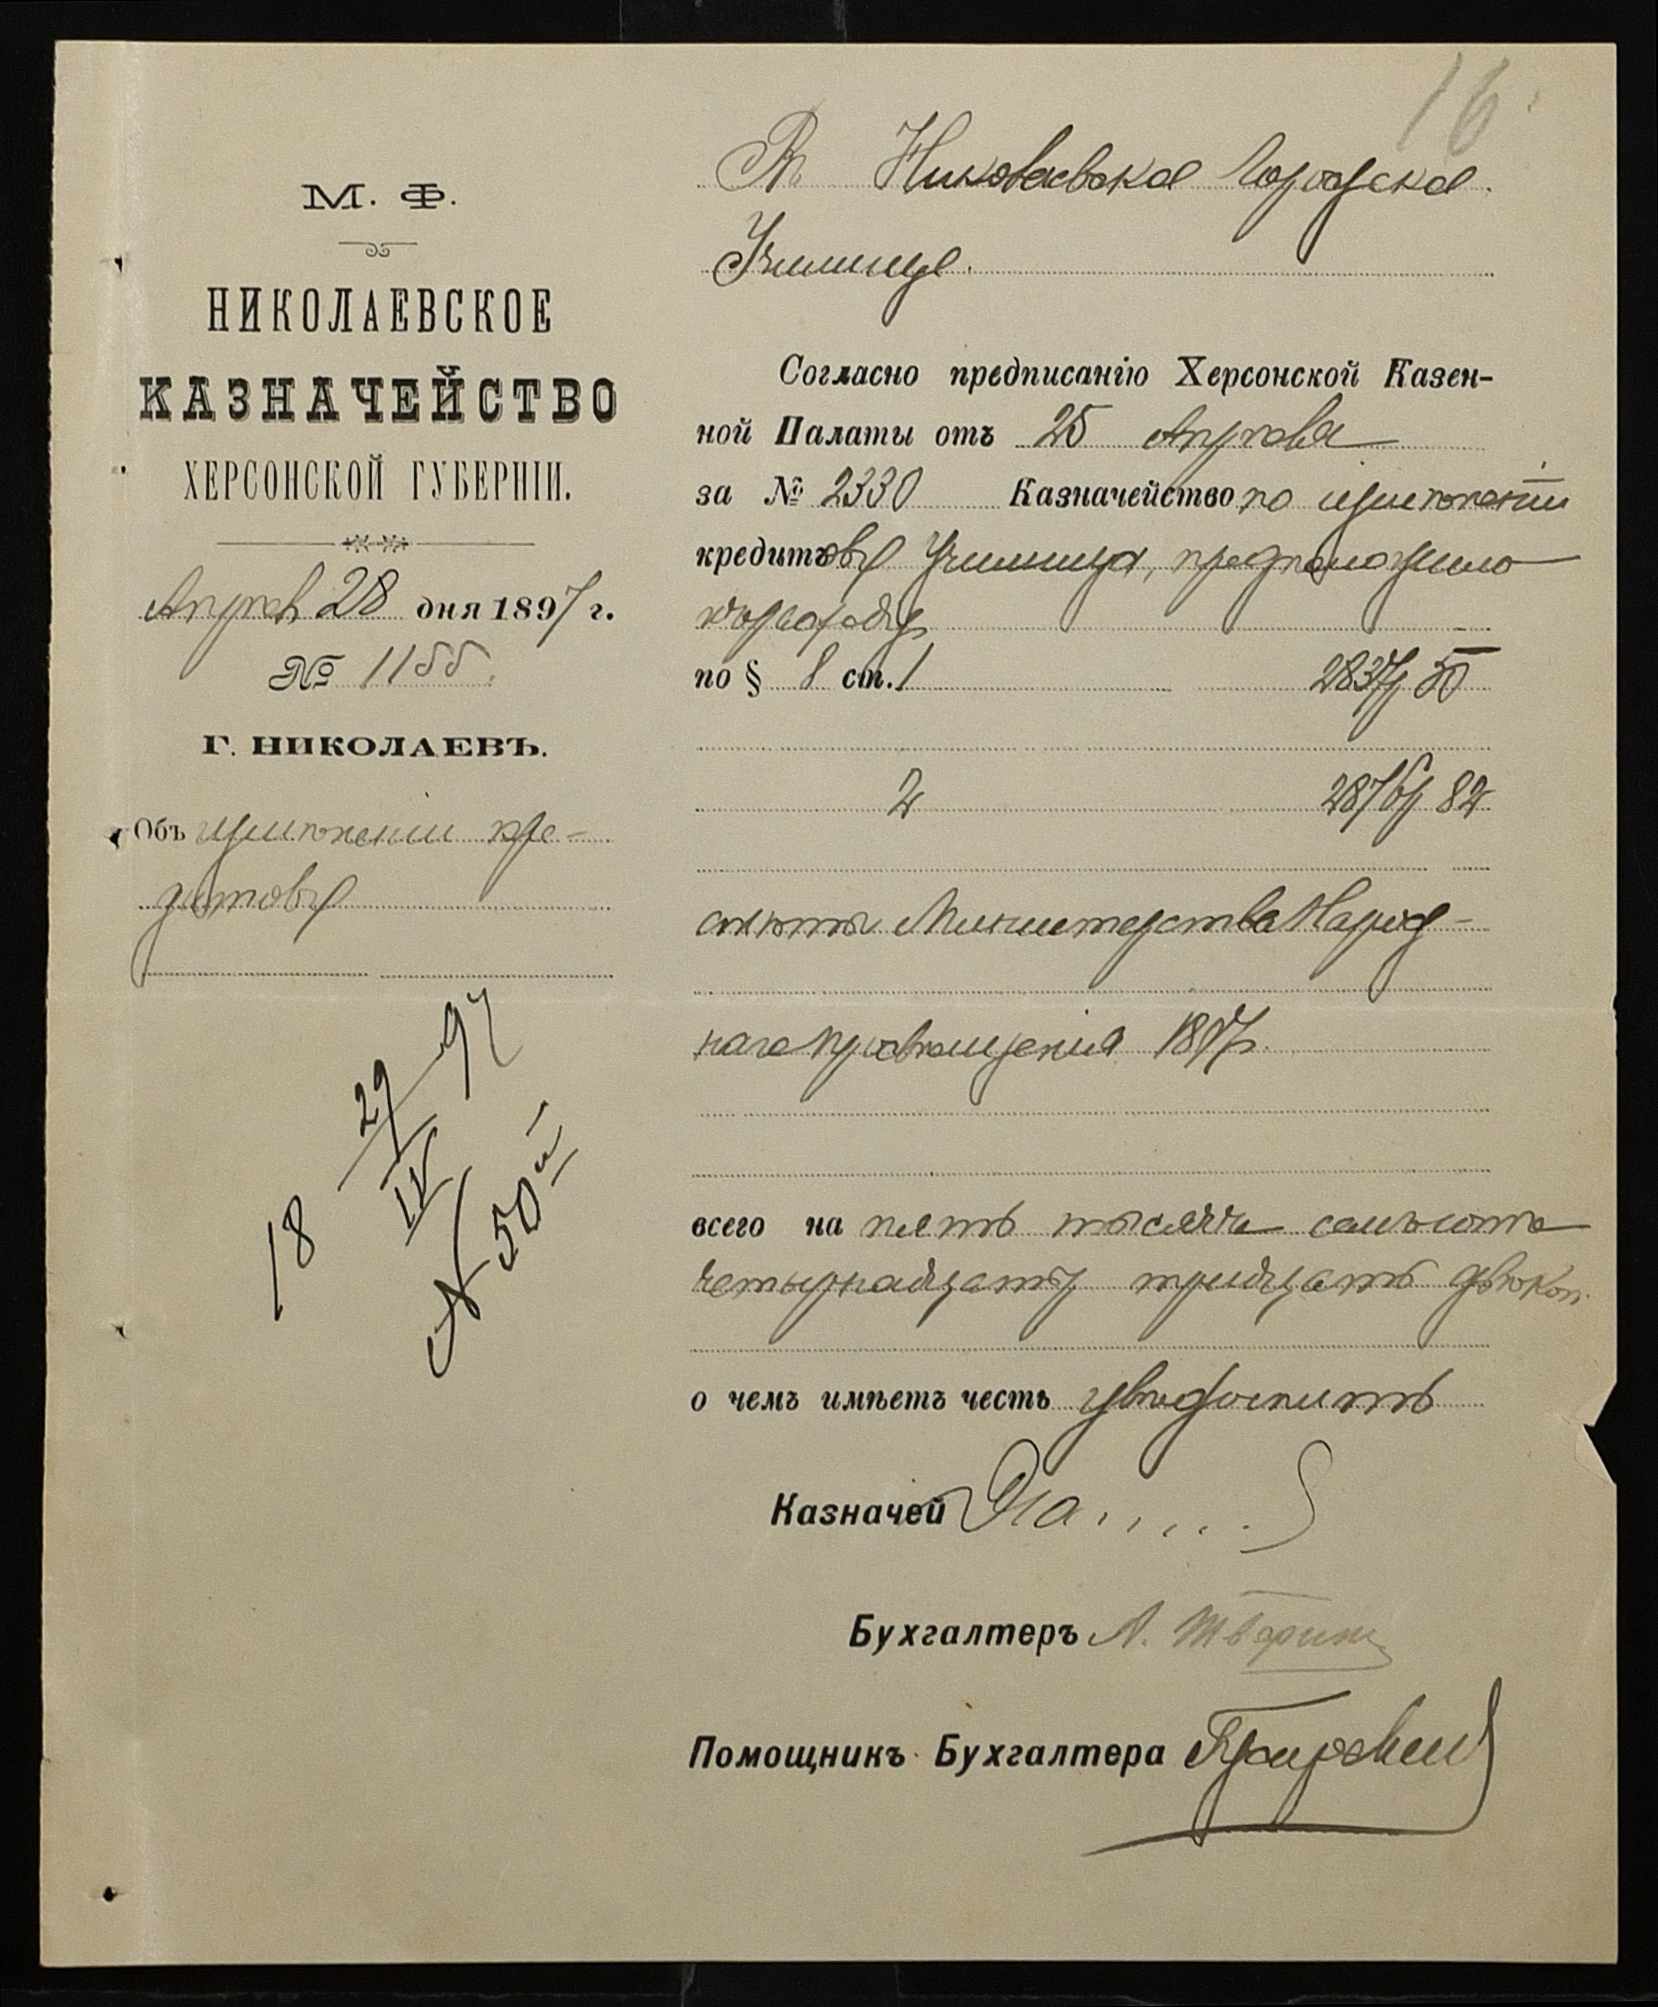 16
М. Ф.
НИКОЛАЕВСКОЕ
КАЗНАЧЕЙСТВО
ХЕРСОНСКОЙ ГУБЕРНІИ.
Апрѣл 28 дня 1897 г.
№ 1155.
Г. НИКОЛАЕВЪ.
Объ кре-
дитовъ
18 29/IV 97
№ 50й
Въ Николаевское Городское
Училище.
Согласно предписанію Херсонской Казен-
ной Палаты отъ 25 Апрѣля
за № 2330 Казначейство по
кредитовъ Училища, предположило
къ расходу
по § 8 ст. 1 2837р 50
2 2876р 82
смѣты Министерства Народ-
наго просвѣщенія 1897г.
всего на пять тысячъ семьсотъ
четырнадцать р тридцать двѣ коп.
о чемъ имѣетъ честь увѣдомить
Казначей
Бухгалтеръ А.
Помощникъ Бухгалтера